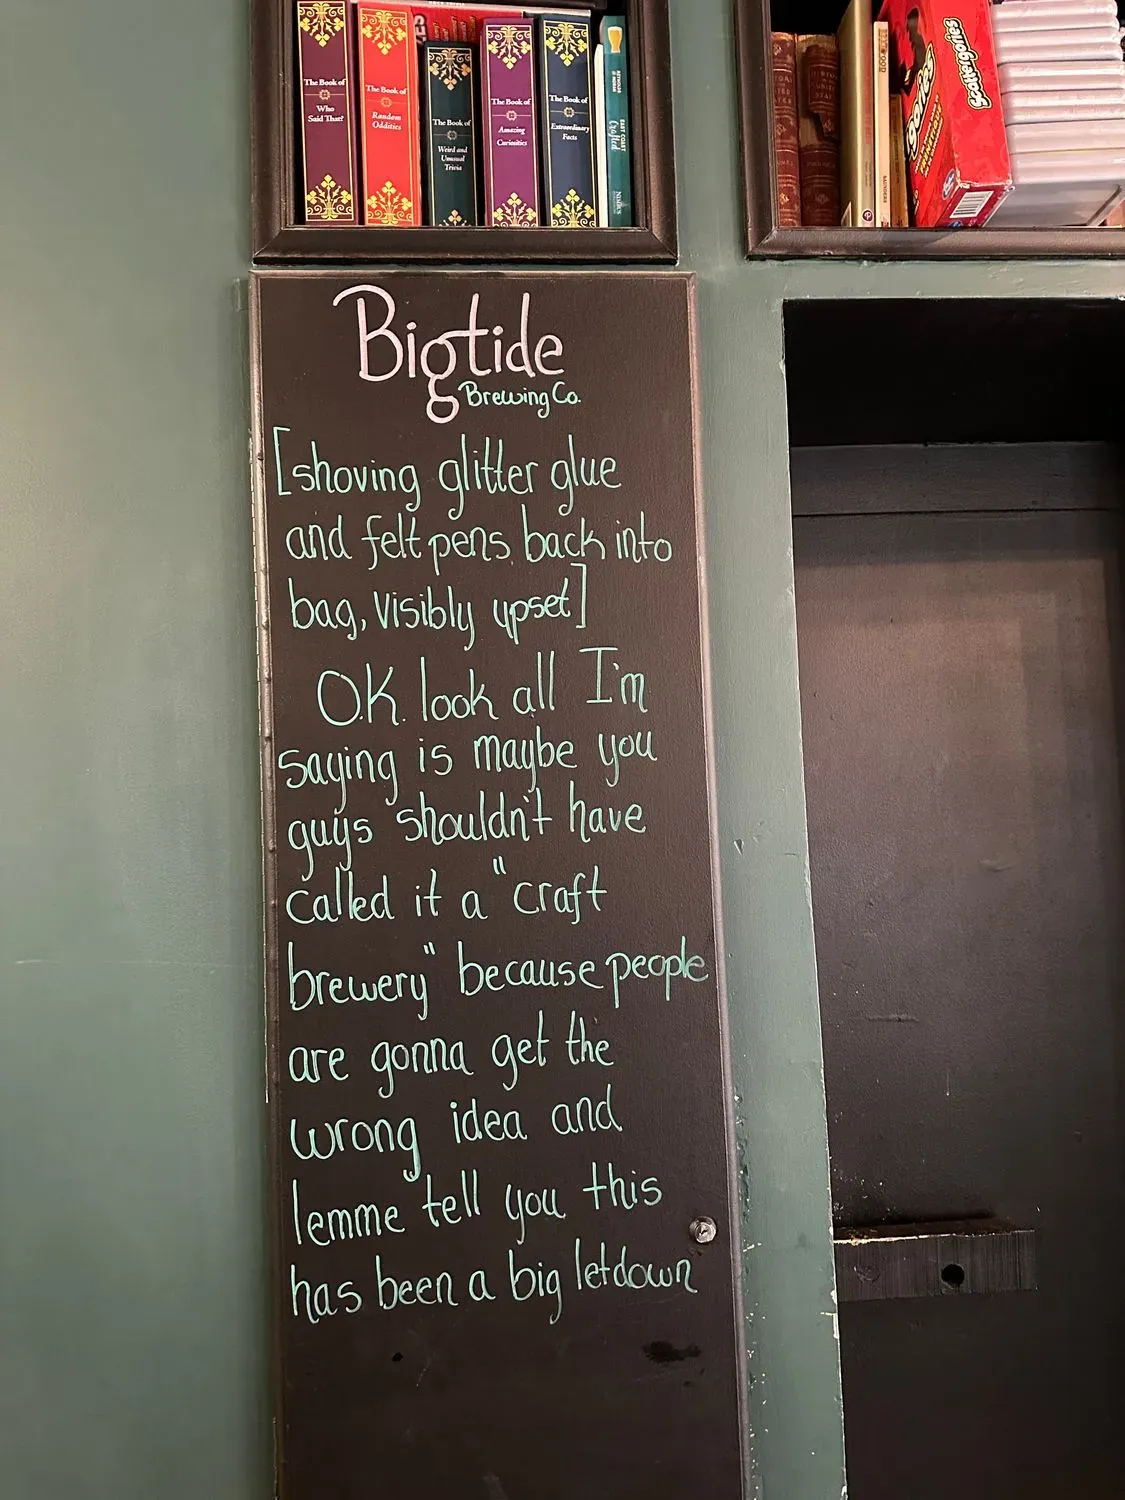 The Book of
Who
Said That?
The Book of
Random
Oddities
The Book of
Weird and
Unusual
Trivia
The Book of
Amazing
Curiosities
The Book of
Extraordinary
Facts
EAST COAST
Crafted
NIMBUS
Scattergories
Bigtide
Brewing Co.
[shoving glitter glue
and felt pens back into
bag, visibly upset]
O.K. look all I'm
saying is maybe you
guys shouldn't have
called it a "craft
brewery" because people
are gonna get the
wrong idea and
lemme tell you this
has been a big letdown